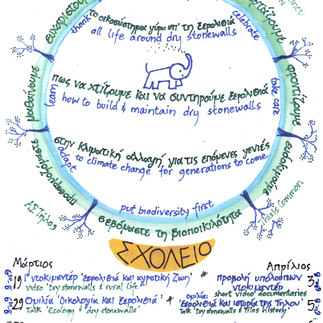 το οικοσύστημα γύρω απ' τη ξερολιθιά
all life around dry stonewalls
thank
celebrate
μαθαίνουμε
learn
πως να χτίζουμε και να συντηρούμε ξερολιθιά
how to build & maintain dry stonewalls
take care
φροντίζουμε
στην κλιματική αλλαγή, για τις επόμενες γενιές
adapt to climate change for generations to come
προσαρμοζόμαστε
put biodiversity first
θεριώστε τη βιοποικιλότητα
ΣΧΟΛΕΙΟ
Μάρτιος
Απρίλιος
19
1° ντοκιμαντέρ 'ξερολιθιά και αγροτική ζωή'
video 'Dry stonewalls & rural life'
προβολή υπόλοιπων ντοκιμαντέρ
short video documentaries
29
Ομιλία 'Οικολογία και ξερολιθιά'
Talk 'Ecology & dry stonewalls'
Ομιλία:
Ξερολιθιά και ιστορία της Τήλου
Talk 'Dry stonewalls & Tilos History'
5